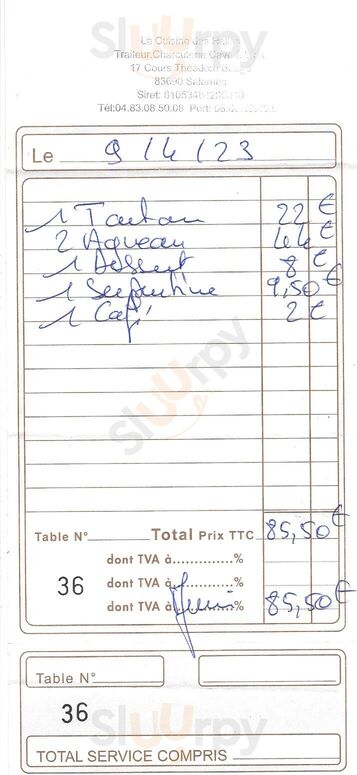 Sluurpy
La Cuisine des Halles
Traiteur Charcuterie
17 Cours Théodore
83690 Salernes
Siret:
Tél:04.83.08.50.08 Port:
Le 9/4/23
1 Tartare 22 €
2 Agneau 44 €
1 Dessert 8 €
1 Serpentine 9,50 €
1 Café 2 €
Sluurpy
Table N° Total Prix TTC 85,50 €
dont TVA à.............%
36 dont TVA à.............%
dont TVA à.............% 85,50 €
Table N°
36
Sluurpy
TOTAL SERVICE COMPRIS